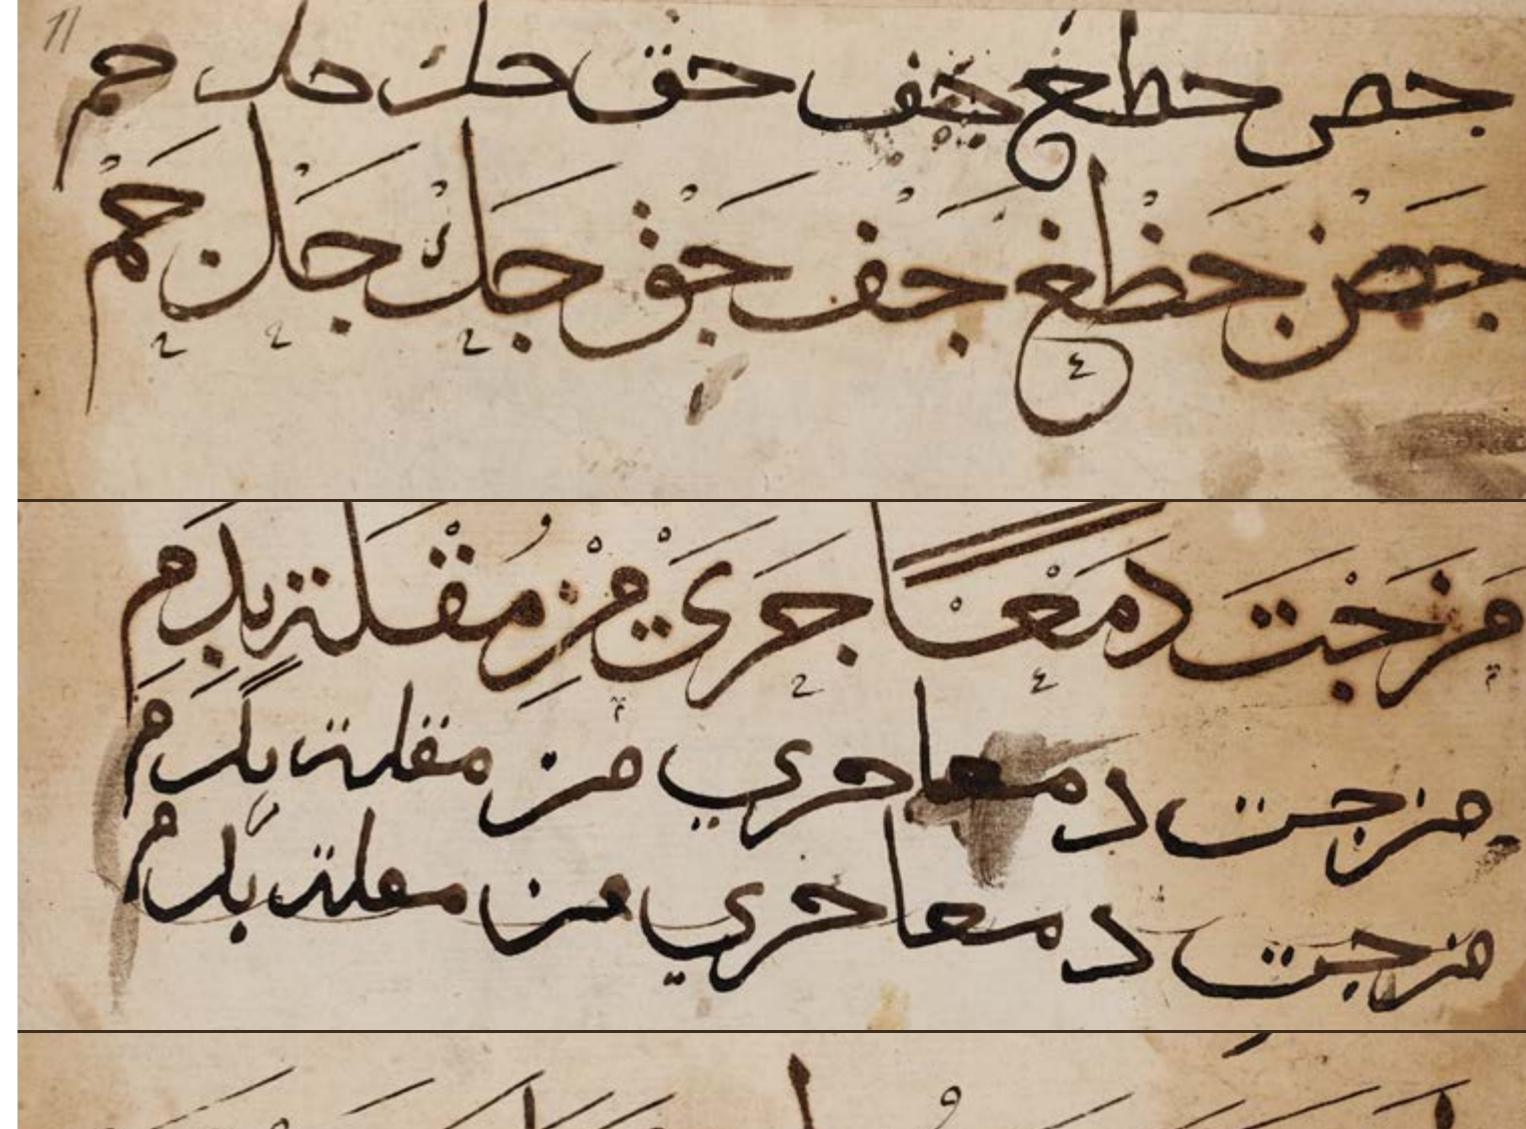 11
جص حطغ جف حق حك حل حم
جَضْ جَظْغ جَفْ جَقْ جَكْ جَلْ حَمْ
مَزَجْتَ دَمْعًا جَرَيْ مِنْ مُقْلَةٍ بِدَمِ
مزجت دمعا حري من مقلة بدم
مزجت دمعا حري من معلة بدم